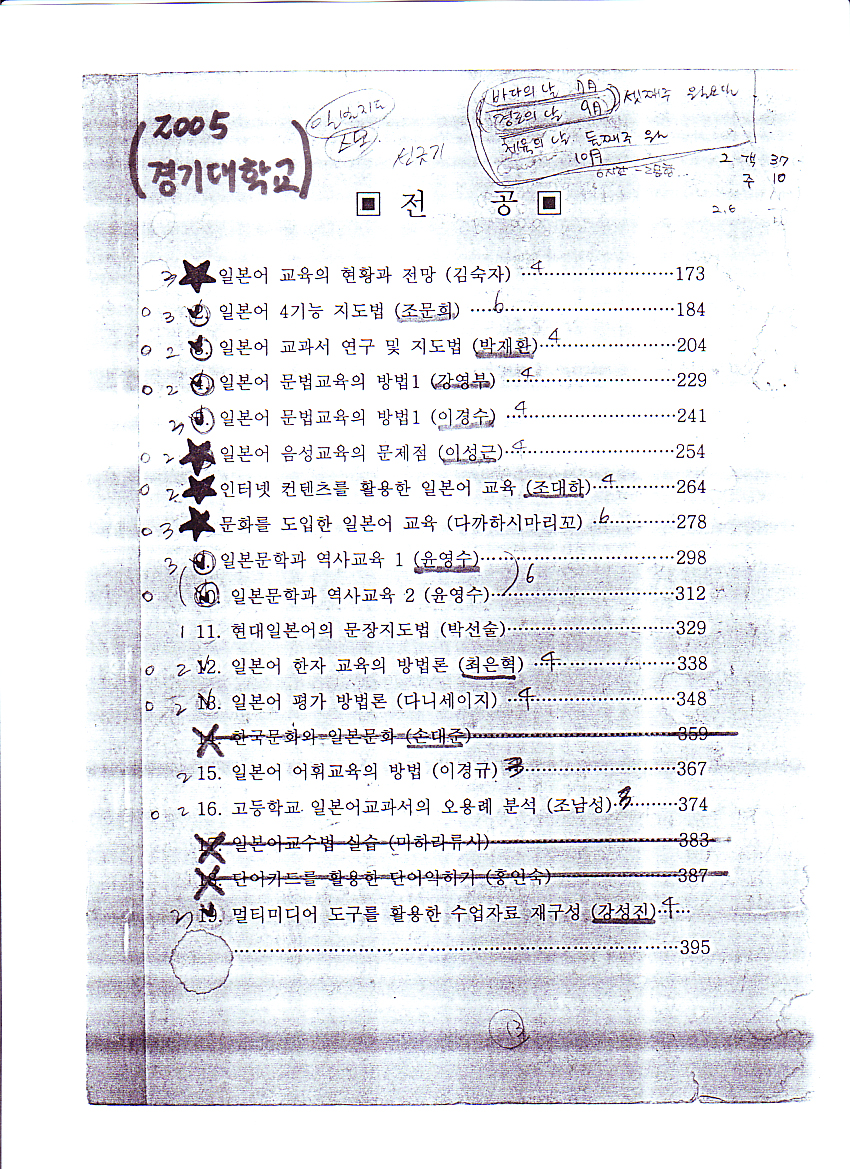 2005
(경기대학교)
바다의 날 7月
경로의 날 9月 셋째주 월요일
체육의 날 둘째주 월
10月
2 객 37
주 10
2.6
▣ 전 공 ▣
3 ★ 일본어 교육의 현황과 전망 (김숙자) 4 ························173
0 3 2. 일본어 4기능 지도법 (조문희) 6 ························184
0 2 3. 일본어 교과서 연구 및 지도법 (박재환) 4 ························204
0 2 4. 일본어 문법교육의 방법1 (강영부) 4 ························229
3 5. 일본어 문법교육의 방법1 (이경수) 4 ························241
0 2 ★ 일본어 음성교육의 문제점 (이성근) 4 ························254
0 2 ★ 인터넷 컨텐츠를 활용한 일본어 교육 (조대하) 4 ························264
0 3 ★ 문화를 도입한 일본어 교육 (다까하시마리꼬) 6 ························278
3 9. 일본문학과 역사교육 1 (윤영수) ························298
0 10. 일본문학과 역사교육 2 (윤영수) 6 ························312
1 11. 현대일본어의 문장지도법 (박선술) ························329
0 2 12. 일본어 한자 교육의 방법론 (최은혁) 4 ························338
0 2 13. 일본어 평가 방법론 (다니세이지) 4 ························348
14. 한국문화와 일본문화 (손대준) ························359
2 15. 일본어 어휘교육의 방법 (이경규) 3 ························367
0 2 16. 고등학교 일본어교과서의 오용례 분석 (조남성) 3 ··········374
17. 일본어교수법 실습 (미하라류시) ························383
18. 단어카드를 활용한 단어익히기 (홍인숙) ························387
2 19. 멀티미디어 도구를 활용한 수업자료 재구성 (강성진) 4 ···
························395
13